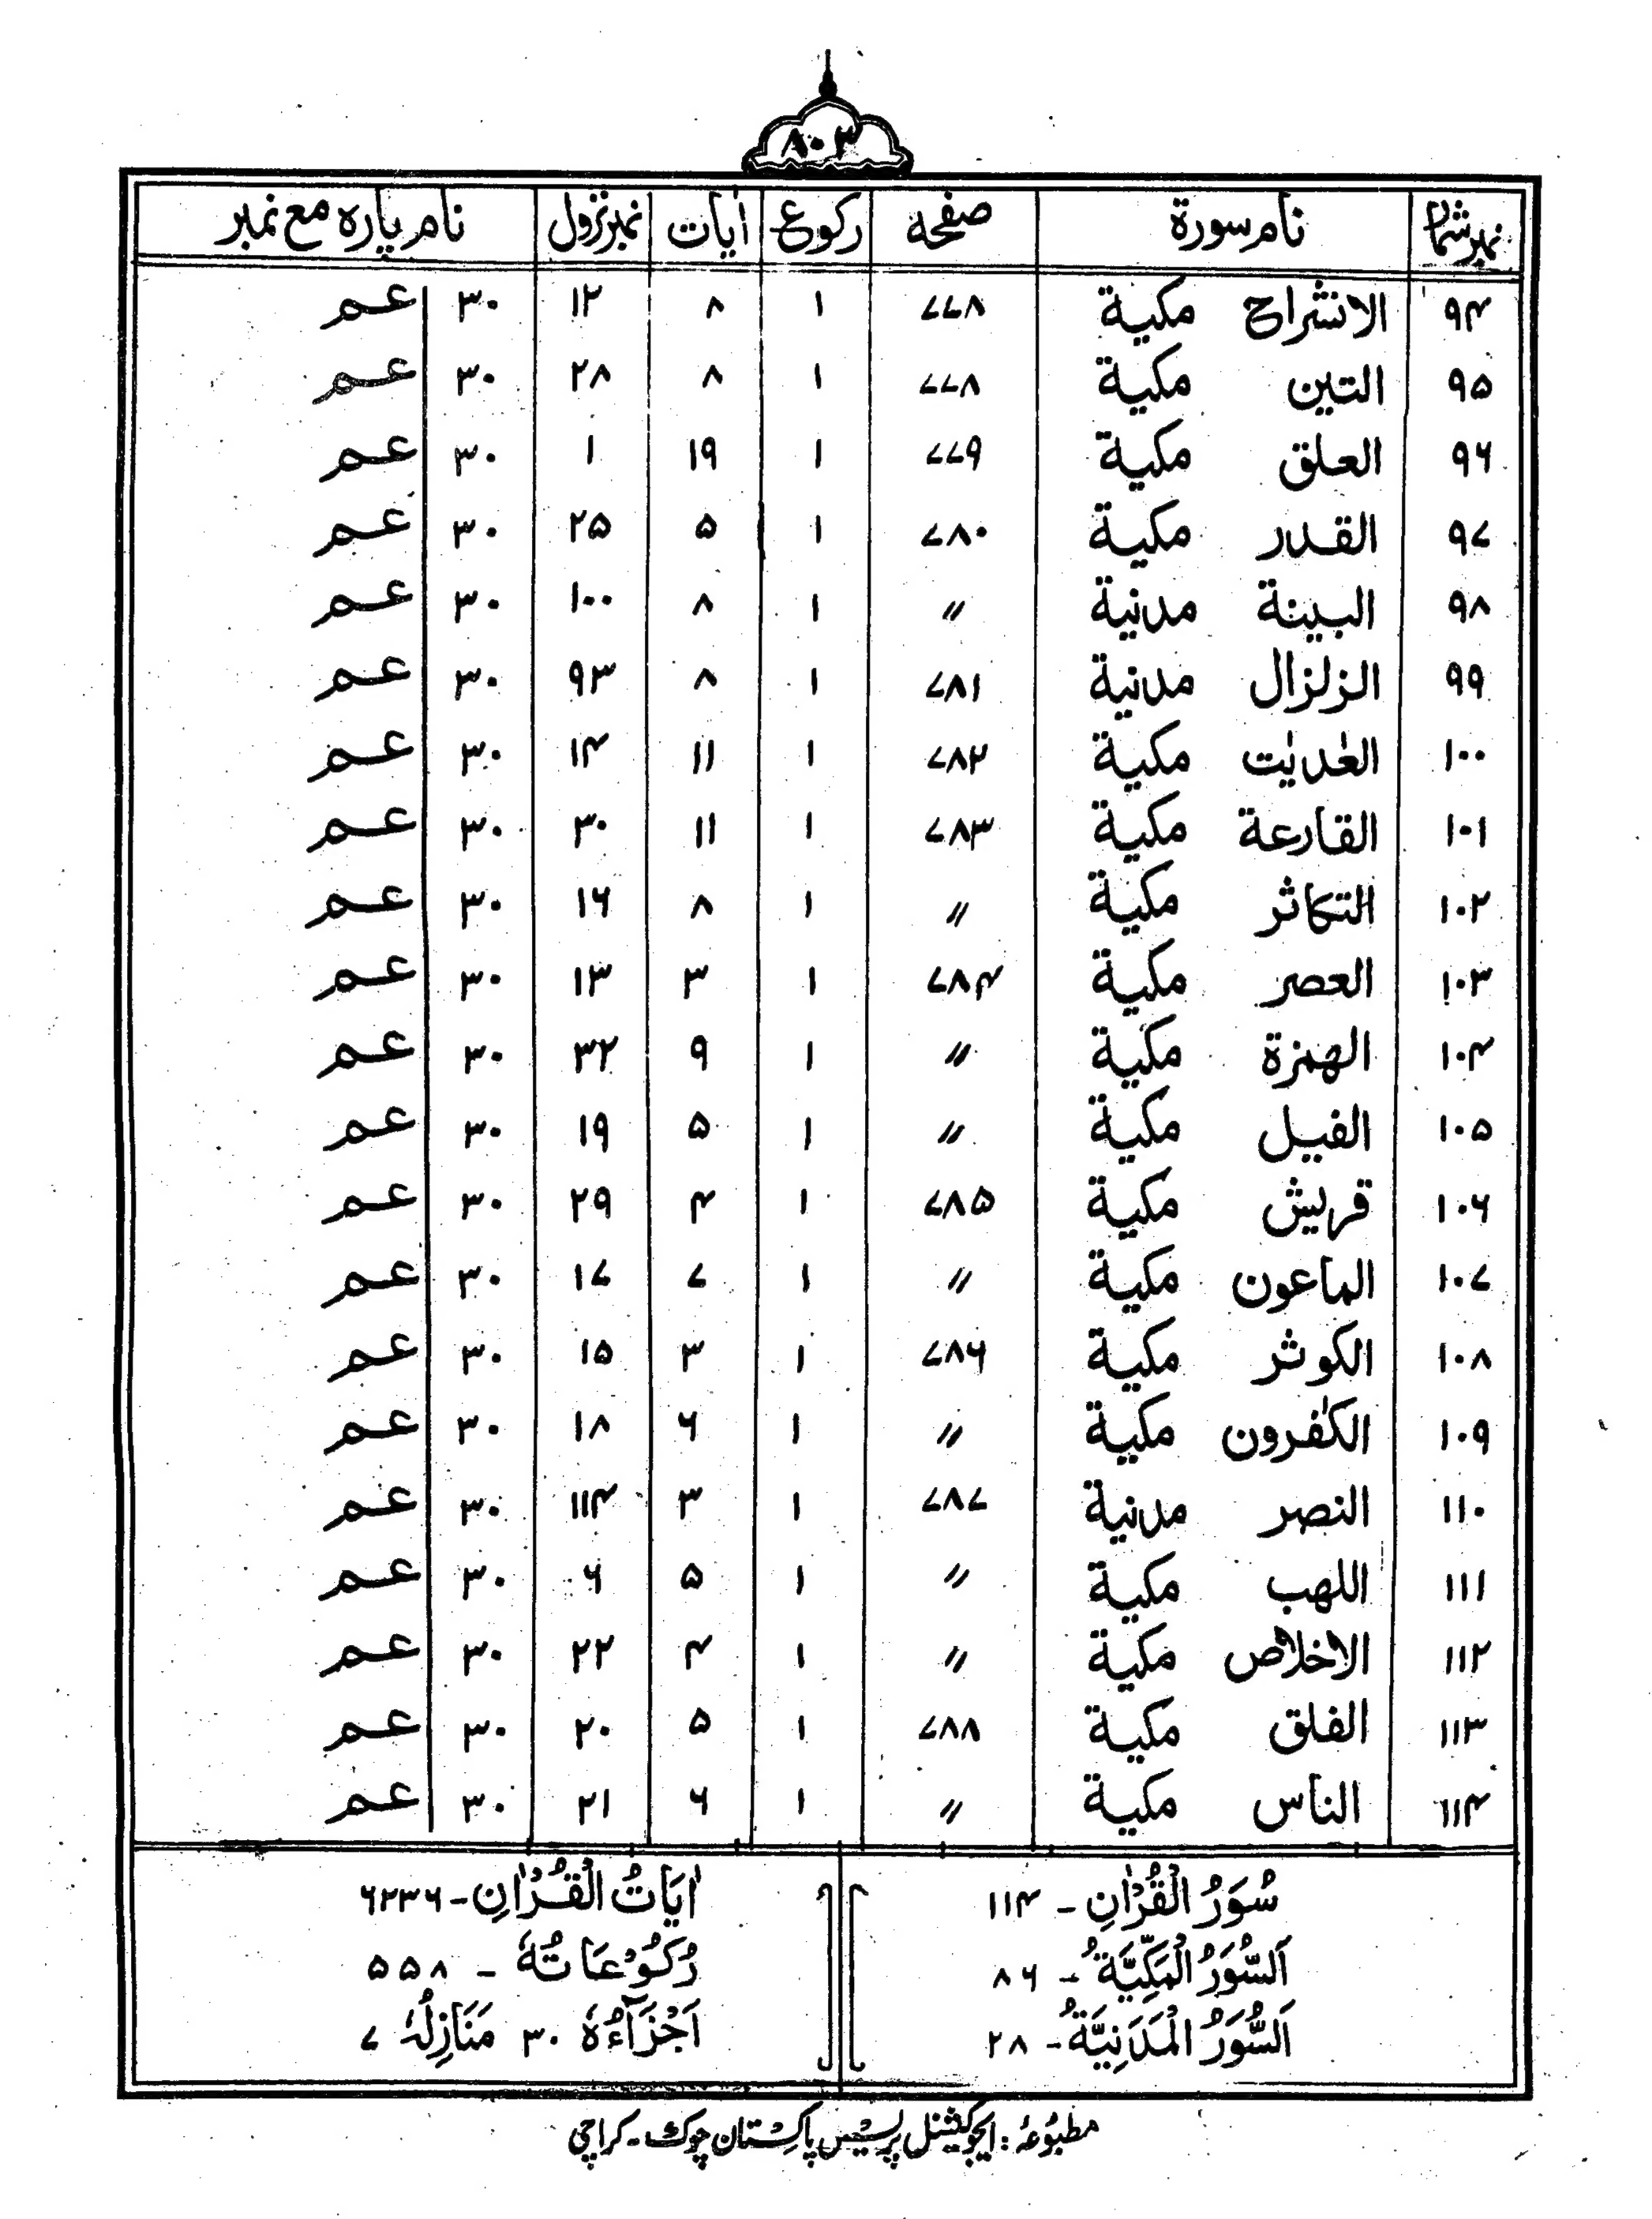 ۸۰۳
نمبرشمار نام سورة صفحه رکوع اٰیات نمبرنزول نام پاره مع نمبر
۹۴ الانشراح مکیة ۷۷۸ ۱ ۸ ۱۲ ۳۰ عم
۹۵ التین مکیة ۷۷۸ ۱ ۸ ۲۸ ۳۰ عم
۹۶ العلق مکیة ۷۷۹ ۱ ۱۹ ۱ ۳۰ عم
۹۷ القدر مکیة ۷۸۰ ۱ ۵ ۲۵ ۳۰ عم
۹۸ البینة مدنیة ٫٫ ۱ ۸ ۱۰۰ ۳۰ عم
۹۹ الزلزال مدنیة ۷۸۱ ۱ ۸ ۹۳ ۳۰ عم
۱۰۰ العٰدیٰت مکیة ۷۸۲ ۱ ۱۱ ۱۴ ۳۰ عم
۱۰۱ القارعة مکیة ۷۸۳ ۱ ۱۱ ۳۰ ۳۰ عم
۱۰۲ التکاثر مکیة ٫٫ ۱ ۸ ۱۶ ۳۰ عم
۱۰۳ العصر مکیة ۷۸۴ ۱ ۳ ۱۳ ۳۰ عم
۱۰۴ الهمزة مکیة ٫٫ ۱ ۹ ۳۲ ۳۰ عم
۱۰۵ الفیل مکیة ٫٫ ۱ ۵ ۱۹ ۳۰ عم
۱۰۶ قریش مکیة ۷۸۵ ۱ ۴ ۲۹ ۳۰ عم
۱۰۷ الماعون مکیة ٫٫ ۱ ۷ ۱۷ ۳۰ عم
۱۰۸ الکوثر مکیة ۷۸۶ ۱ ۳ ۱۵ ۳۰ عم
۱۰۹ الکٰفرون مکیة ٫٫ ۱ ۶ ۱۸ ۳۰ عم
۱۱۰ النصر مدنیة ۷۸۷ ۱ ۳ ۱۱۴ ۳۰ عم
۱۱۱ اللهب مکیة ٫٫ ۱ ۵ ۶ ۳۰ عم
۱۱۲ الاخلاص مکیة ٫٫ ۱ ۴ ۲۲ ۳۰ عم
۱۱۳ الفلق مکیة ۷۸۸ ۱ ۵ ۲۰ ۳۰ عم
۱۱۴ الناس مکیة ٫٫ ۱ ۶ ۲۱ ۳۰ عم
سُوَرُ الْقُرْاٰنِ - ۱۱۴
اَلسُّوَرُ الْمَکِّیَّةُ - ۸۶
اَلسُّوَرُ الْمَدَنِیَّةُ - ۲۸
اٰیَاتُ الْقُرْاٰنِ - ۶۲۳۶
رُکُوْعَاتُهٗ - ۵۵۸
اَجْزَآءُهٗ ۳۰ مَنَازِلُهٗ ۷
مطبُوعُہ : ایجوکیشنل پریس پاکستان چوک ۔ کراچی